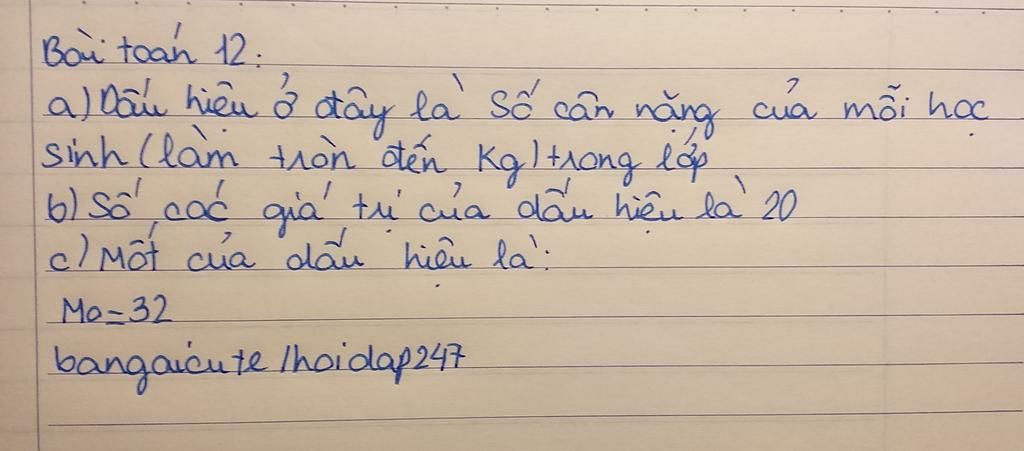 Bài toán 12:
a) Dấu hiệu ở đây là Số cân nặng của mỗi học
sinh (làm tròn đến Kg) trong lớp
b) Số các giá trị của dấu hiệu là 20
c) Mốt của dấu hiệu là:
Mo=32
bangaicute/hoidap247